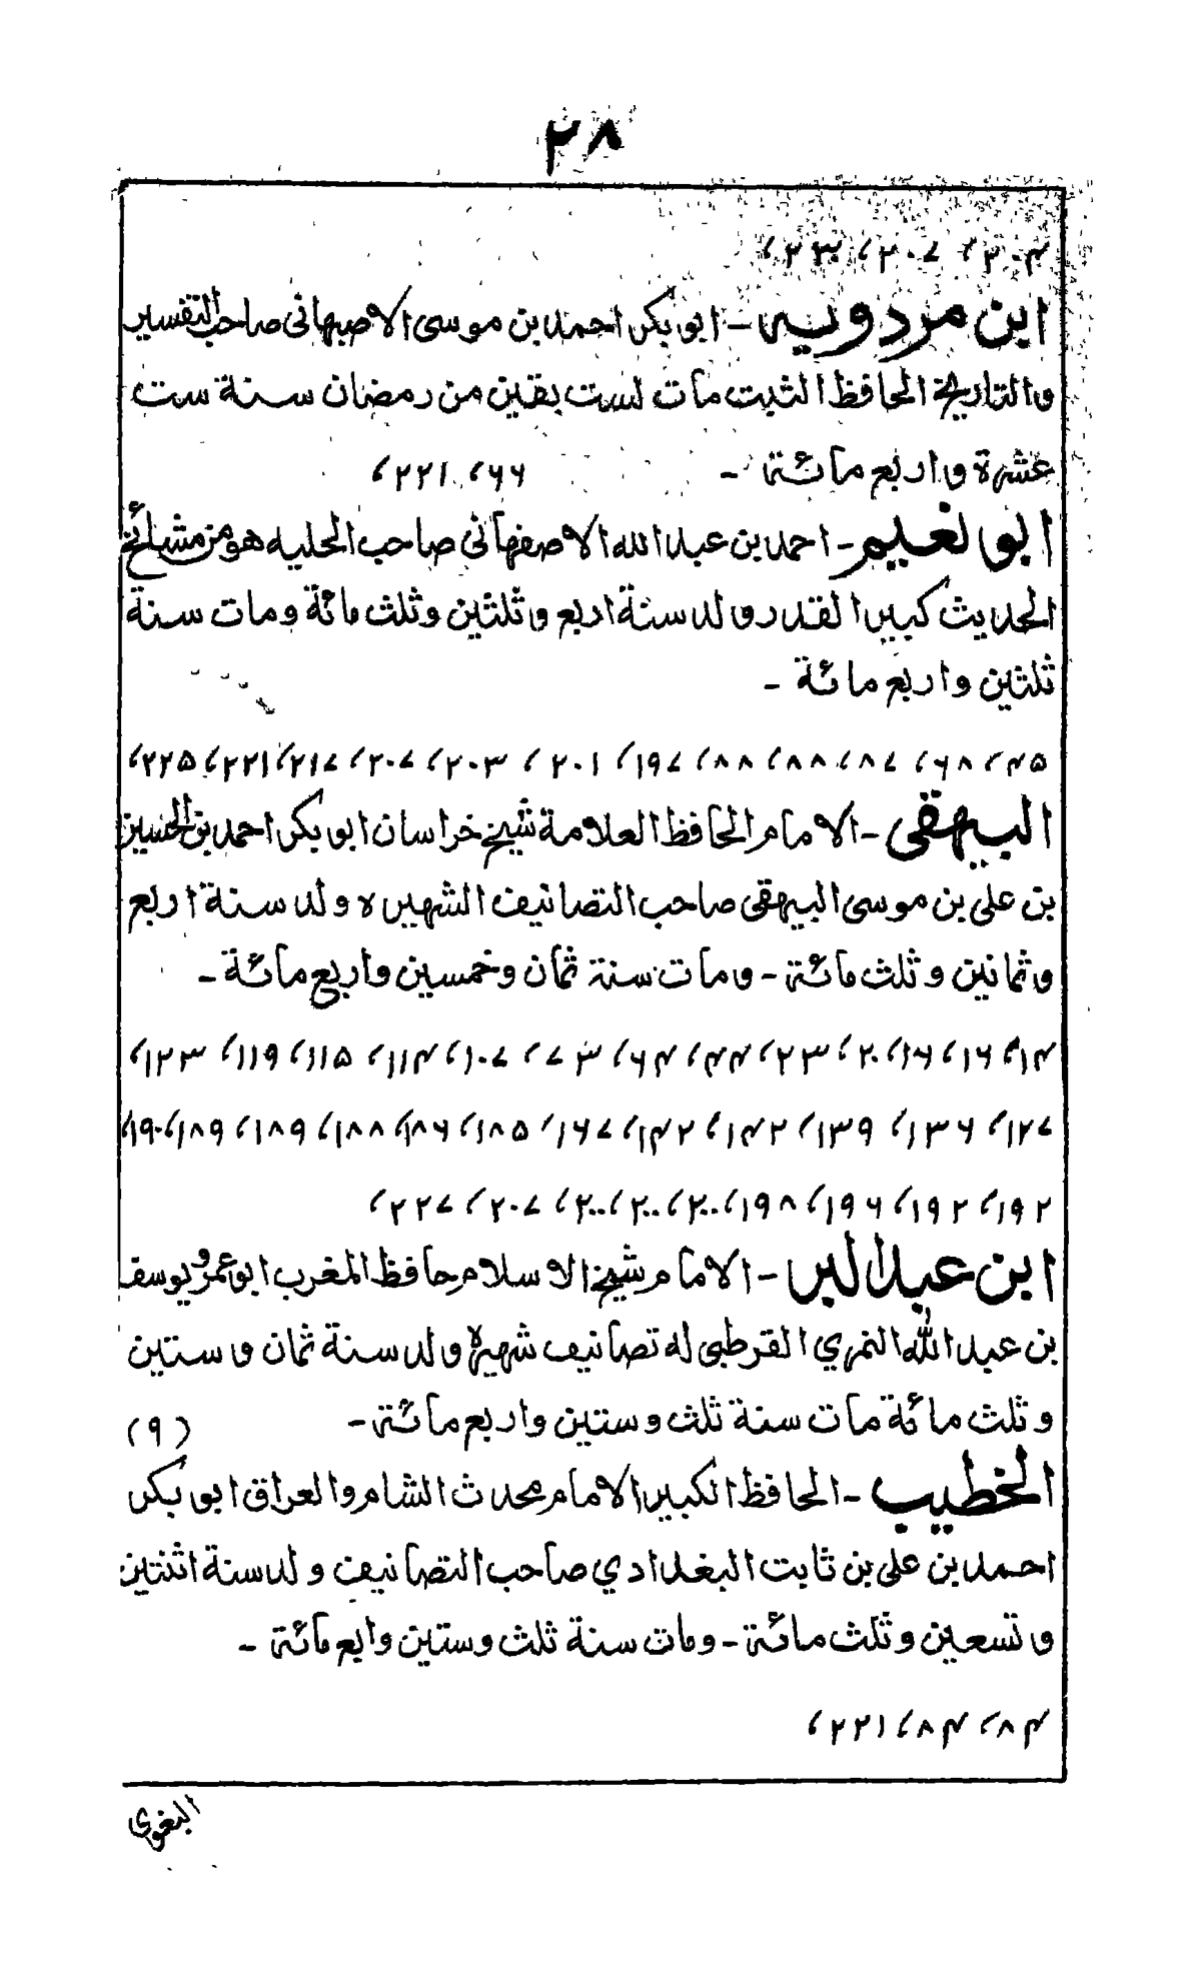 ۲۸
۲۰۴، ۲۰۷، ۲۳۰،
ابن مردويه - ابو بكر احمد بن موسى الاصبهانى صاحب التفسير
والتاريخ الحافظ الثبت مات لست بقين من رمضان سنة ست
عشرة واربع مائة - ۶۶، ۲۲۱،
ابو نعيم - احمد بن عبد الله الاصفهانى صاحب الحليه هو من مشائخ
الحديث كبير القدر ولد سنة اربع وثلثين وثلث مائة ومات سنة
ثلثين واربع مائة -
۴۵، ۶۸، ۸۷، ۸۸، ۸۸، ۱۹۷، ۲۰۱، ۲۰۳، ۲۰۷، ۲۱۷، ۲۲۱، ۲۲۵،
البيهقى - الامام الحافظ العلامة شيخ خراسان ابو بكر احمد بن الحسين
بن على بن موسى البيهقى صاحب التصانيف الشهيره ولد سنة اربع
وثمانين وثلث مائة - ومات سنة ثمان وخمسين واربع مائة -
۱۴، ۱۶، ۱۶، ۲۰، ۲۳، ۴۴، ۶۴، ۷۳، ۱۰۷، ۱۱۴، ۱۱۵، ۱۱۹، ۱۲۳،
۱۲۷، ۱۳۶، ۱۳۹، ۱۴۲، ۱۴۲، ۱۶۷، ۱۸۵، ۱۸۶، ۱۸۸، ۱۸۹، ۱۸۹، ۱۹۰،
۱۹۲، ۱۹۲، ۱۹۶، ۱۹۸، ۲۰۰، ۲۰۰، ۲۰۰، ۲۰۷، ۲۲۷،
ابن عبد البر - الامام شيخ الاسلام حافظ المغرب ابو عمرو يوسف
بن عبد الله النمري القرطبى له تصانيف شهيرة ولد سنة ثمان وستين
وثلث مائة مات سنة ثلث وستين واربع مائة - (۹)
الخطيب - الحافظ الكبير الامام محدث الشام والعراق ابو بكر
احمد بن على بن ثابت البغدادي صاحب التصانيف ولد سنة اثنتين
وتسعين وثلث مائة - ومات سنة ثلث وستين وابع مائة -
۸۴، ۸۴، ۲۲۱،
البغوي